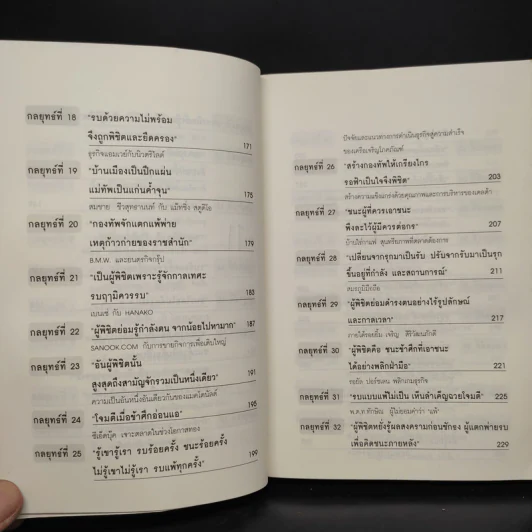 กลยุทธ์ที่ 18 "รบด้วยความไม่พร้อม
จึงถูกพิชิตและยึดครอง" 171
ธุรกิจแอมเวย์กับนิวตริไลต์
กลยุทธ์ที่ 19 "บ้านเมืองเป็นปึกแผ่น
แม่ทัพเป็นแก่นค้ำจุน" 175
สมชาย ชีวสุทธานนท์ กับ แม็ทชิ่ง สตูดิโอ
กลยุทธ์ที่ 20 "กองทัพจักแตกแพ้พ่าย
เหตุก้าวก่ายของราชสำนัก" 179
B.M.W. และยนตรกิจกรุ๊ป
กลยุทธ์ที่ 21 "เป็นผู้พิชิตเพราะรู้จักกาลเทศะ
รบฤามิควรรบ" 183
เบนเซ่ กับ HANAKO
กลยุทธ์ที่ 22 "ผู้พิชิตย่อมรู้กำลังตน จากน้อยไปหามาก" 187
SANOOK.COM กับการขายกิจการเพื่อเติบใหญ่
กลยุทธ์ที่ 23 "อันผู้พิชิตนั้น
สูงสุดถึงสามัญจักรวมเป็นหนึ่งเดียว" 191
ความเป็นอันหนึ่งอันเดียวกันของแมคโดนัลด์
กลยุทธ์ที่ 24 "โจมตีเมื่อข้าศึกอ่อนแอ" 195
ซีเอ็ดบุ๊ค เจาะตลาดในช่วงโอกาสทอง
กลยุทธ์ที่ 25 "รู้เขารู้เรา รบร้อยครั้ง ชนะร้อยครั้ง
ไม่รู้เขาไม่รู้เรา รบแพ้ทุกครั้ง" 199
ปัจจัยและแนวทางการดำเนินธุรกิจสู่ความสำเร็จ
ของเครือเจริญโภคภัณฑ์
กลยุทธ์ที่ 26 "สร้างกองทัพให้เกรียงไกร
รอฟ้าเป็นใจจึงพิชิต" 203
สร้างความแข็งแกร่งด้วยคุณภาพและการบริหารของเดลต้า
กลยุทธ์ที่ 27 "ชนะผู้ที่ควรเอาชนะ
พึงละไว้ผู้มีควรต่อกร" 207
บ้านไร่กาแฟ สุนทรียภาพที่ตลาดต้องการ
กลยุทธ์ที่ 28 "เปลี่ยนจากรุกมาเป็นรับ ปรับจากรับมาเป็นรุก
ขึ้นอยู่ที่กำลัง และสถานการณ์" 211
กลยุทธ์ที่ 29 "ผู้พิชิตย่อมดำรงตนอย่างไร้รูปลักษณ์
และกาลเวลา" 217
กลยุทธ์ที่ 30 "ผู้พิชิตคือ ชนะข้าศึกที่เอาชนะ
ได้อย่างพลิกฝ่ามือ" 221
กลยุทธ์ที่ 31 "รบแบบแพ้ไม่เป็น เห็นสำคัญฉวยโจมตี" 225
พ.ต.ท.ทักษิณ ผู้ไม่ยอมคำว่า "แพ้"
กลยุทธ์ที่ 32 "ผู้พิชิตหยั่งรู้ผลสงครามก่อนชักธง ผู้แตกพ่ายรบ
เพื่อคิดชนะภายหลัง" 229